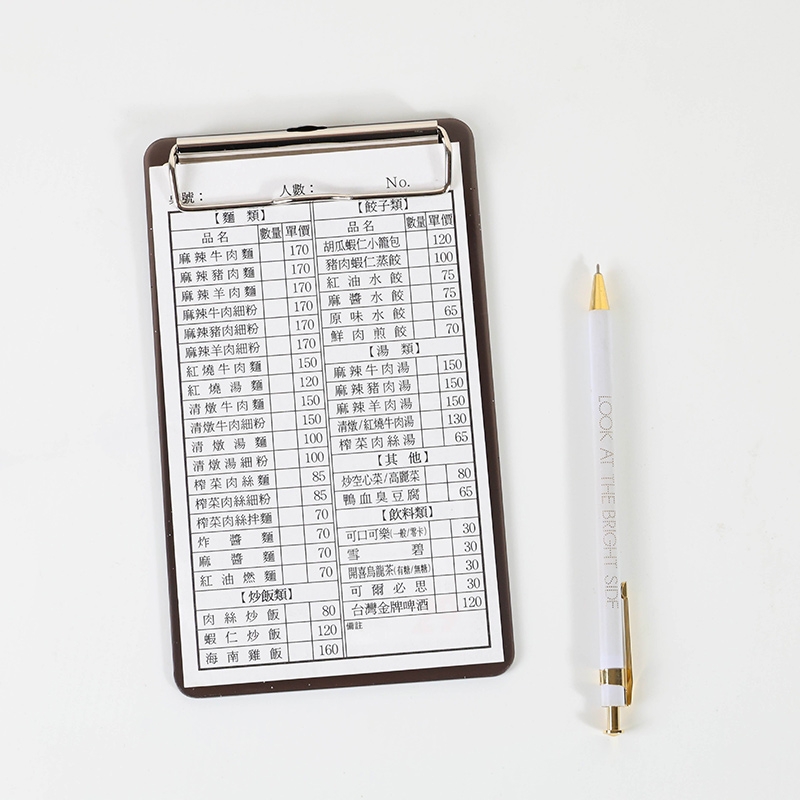 號： 人數： No.
【麵 類】
品名 數量 單價
麻辣牛肉麵 170
麻辣豬肉麵 170
麻辣羊肉麵 170
麻辣牛肉細粉 170
麻辣豬肉細粉 170
麻辣羊肉細粉 170
紅燒牛肉麵 150
紅燒湯麵 120
清燉牛肉麵 150
清燉牛肉細粉 150
清燉湯麵 100
清燉湯細粉 100
榨菜肉絲麵 85
榨菜肉絲細粉 85
榨菜肉絲拌麵 70
炸醬麵 70
麻醬麵 70
紅油燃麵 70
【炒飯類】
肉絲炒飯 80
蝦仁炒飯 120
海南雞飯 160
【餃子類】
品名 數量 單價
胡瓜蝦仁小籠包 120
豬肉蝦仁蒸餃 100
紅油水餃 75
麻醬水餃 75
原味水餃 65
鮮肉煎餃 70
【湯 類】
麻辣牛肉湯 150
麻辣豬肉湯 150
麻辣羊肉湯 150
清燉/紅燒牛肉湯 130
榨菜肉絲湯 65
【其 他】
炒空心菜/高麗菜 80
鴨血臭豆腐 65
【飲料類】
可口可樂(一般/零卡) 30
雪碧 30
開喜烏龍茶(有糖/無糖) 30
可爾必思 30
台灣金牌啤酒 120
備註
LOOK AT THE BRIGHT SIDE